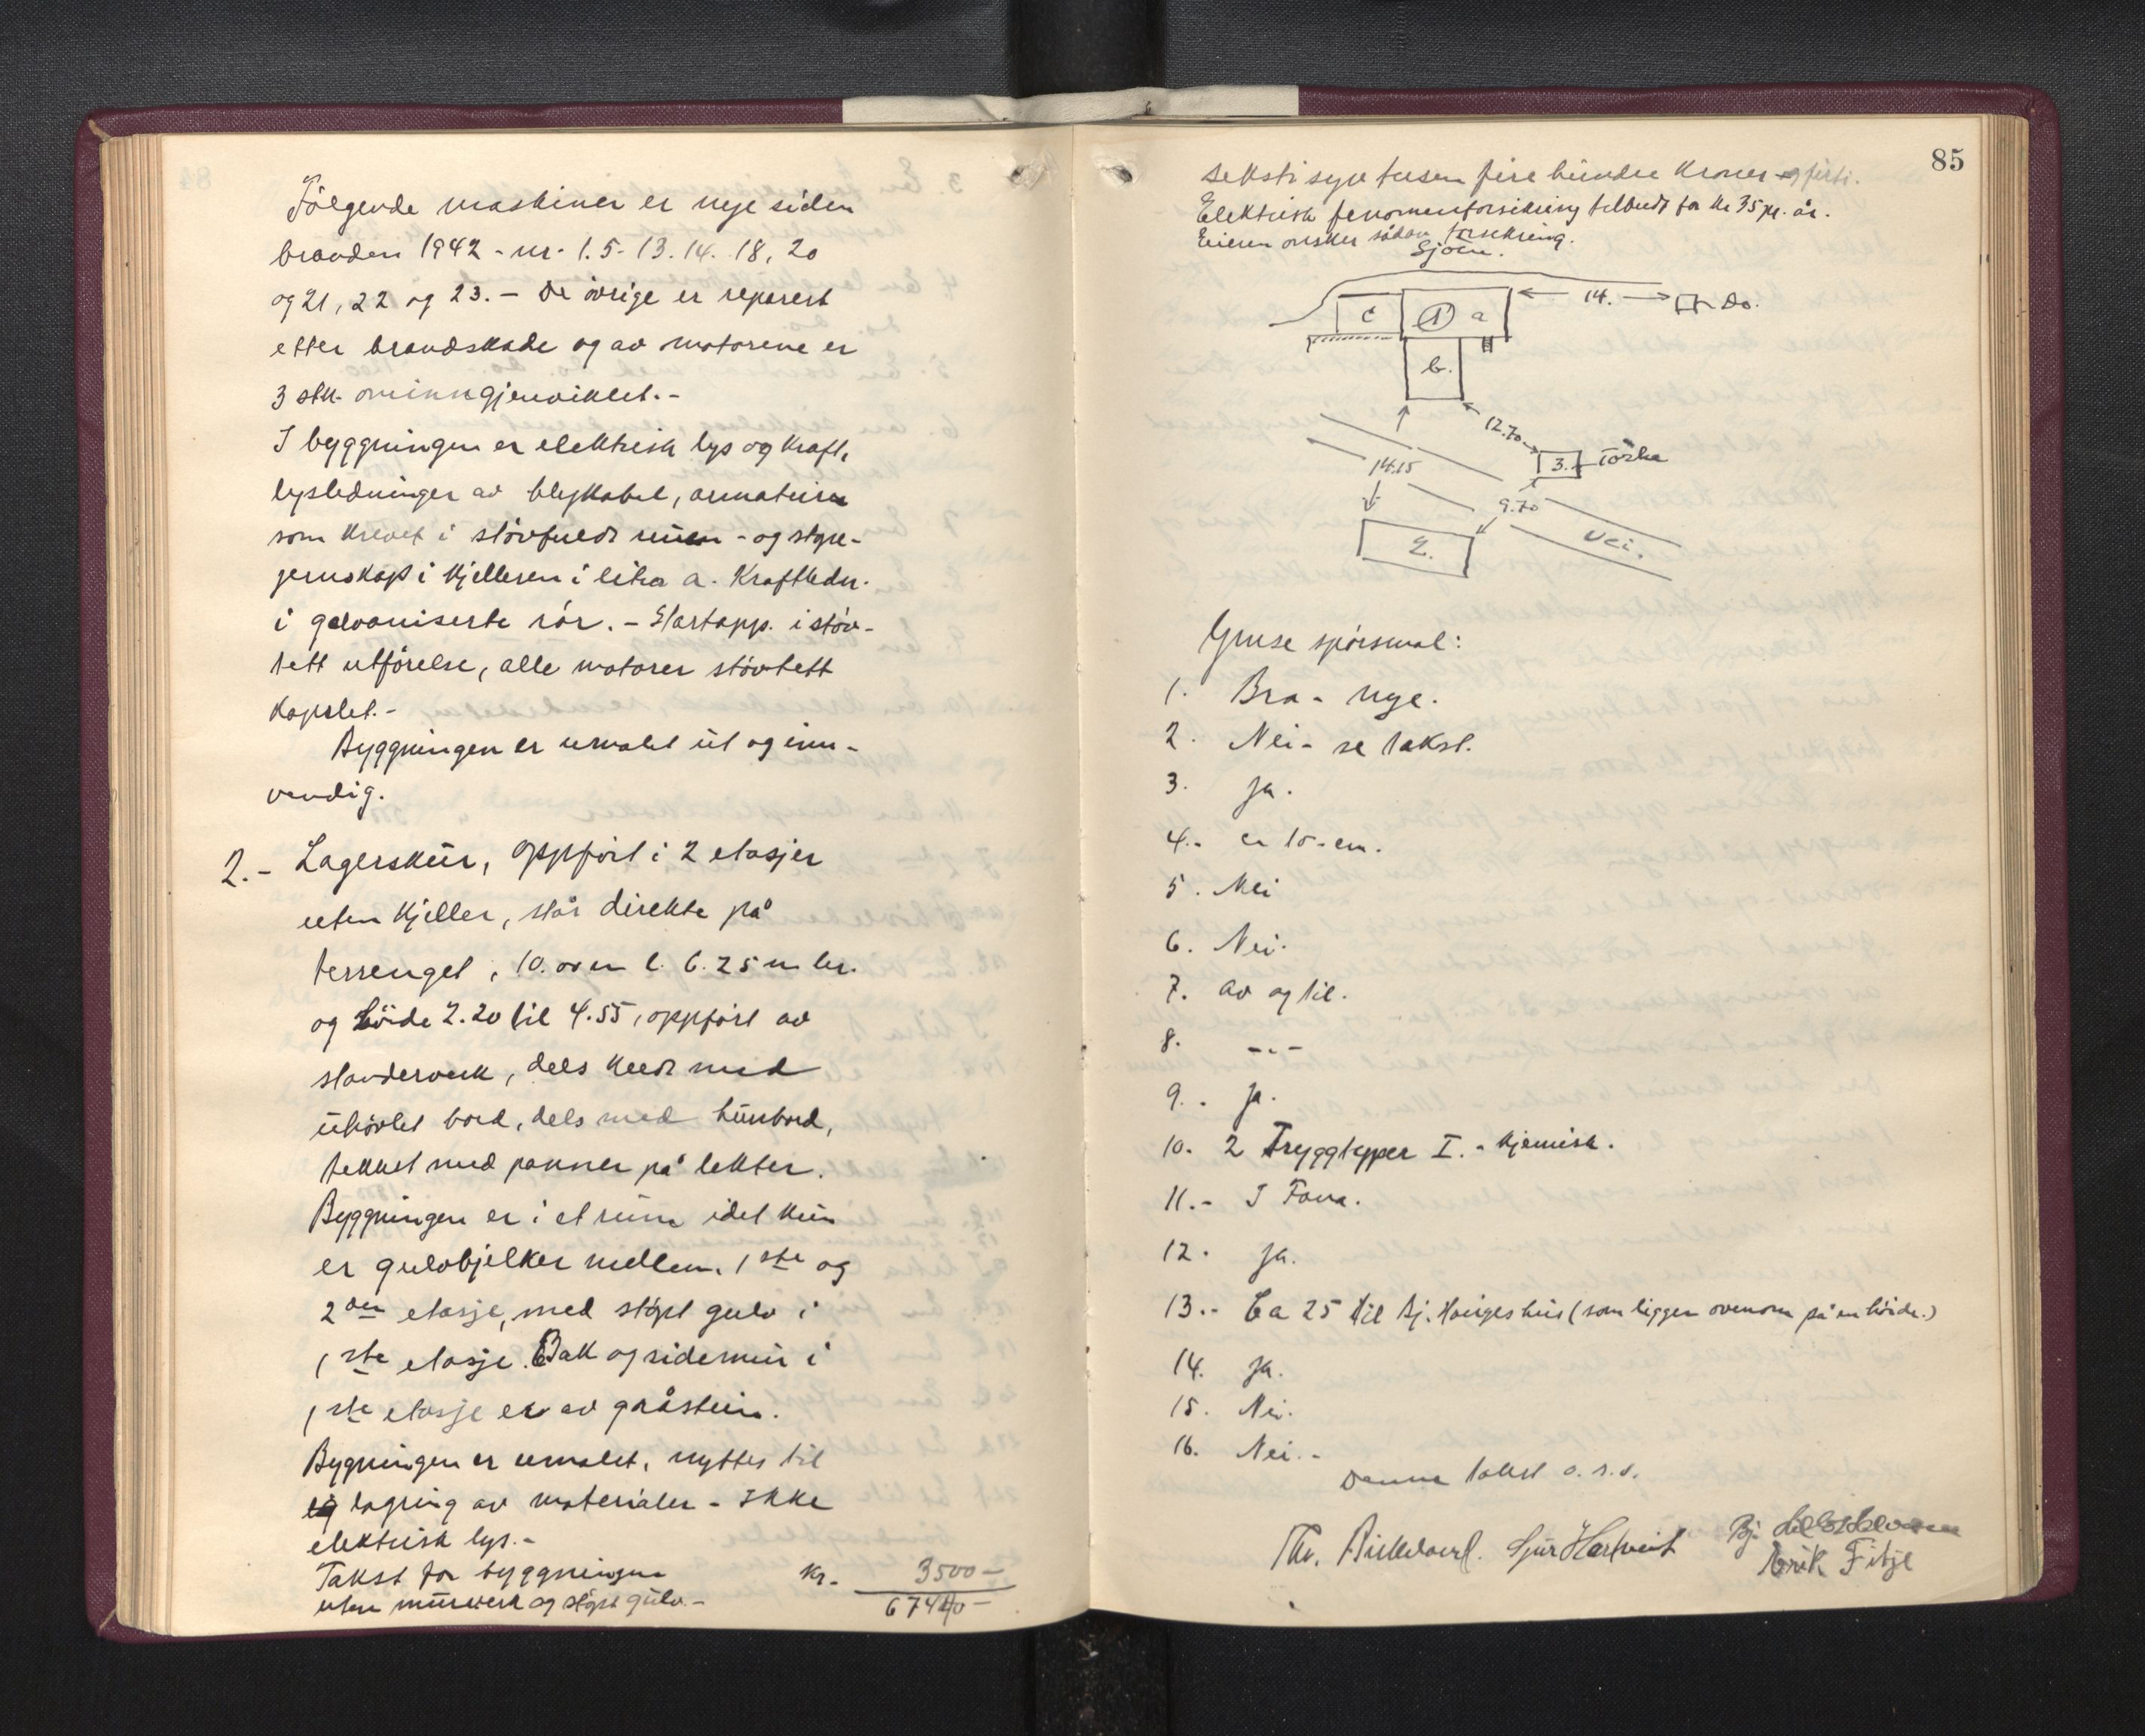 Følgende maskiner er nye siden
branden 1942 - nr. 1. 5 - 13. 14. 18, 20
og 21, 22 og 23. - De øvrige er reparert
etter brandskade og av motorene er
3 stk. ominngjenviklet. -
I byggningen er elektrisk lys og kraft,
lysledninger av blykabel, armaturer
som krevet i støvfuldt rum - og styre-
jernskap i kjelleren i litra a. Kraftledn.
i galvaniserte rör. - Startapp. i støv-
tett utförelse, alle motorer støvtett
kapslet. -
Byggningen er umalet ut og inn-
vendig.
2. - Lagerskur, oppfört i 2 etasjer
uten kjeller, står direkte på
terrenget, 10. m l. 6.25 m br.
og höide 2.20 til 4.55, oppfört av
standerverk, dels kledt med
uhövlet bord, dels med hunbord,
tekket med panner på lekter.
Byggningen er i et rum idet kun
er gulvbjelker mellem 1ste og
2den etasje, med støpt gulv i
1ste etasje. Bak og sidemur i
1ste etasje er av gråstein.
Bygningen er umalet, nyttes til
lagring av materialer - Ikke
elektrisk lys. -
Takst for byggningen kr. 3500 -
uten murverk og støpt gulv. - 67440 -
85
sekstisyv tusen fire hundre kroner og førti.
Elektrisk fenomenforsikring tilbudt for kr 35 pr. år.
Eieren ønsker sådan forsikring.
Sjöen.
c 1 a 14. Do.
b.
12.70
14.15 3. Törke
9.70
2. Vei.
Gruse spörsmal:
1. Bra - nye.
2. Nei - se takst.
3. Ja.
4. - ca 15 - em.
5. Nei
6. Nei.
7. av og til.
8. -.-
9. Ja.
10. 2 Tryggtepper I. - kjemisk.
11. - I Fana.
12. Ja.
13. - Ca 25 til Bj. Hauges hus (som ligger ovenom på en höide.)
14. Ja.
15. Nei.
16. Nei. -
Denne takst o. s. v.
Sjur Hartveit Bj.
Erik Fitje